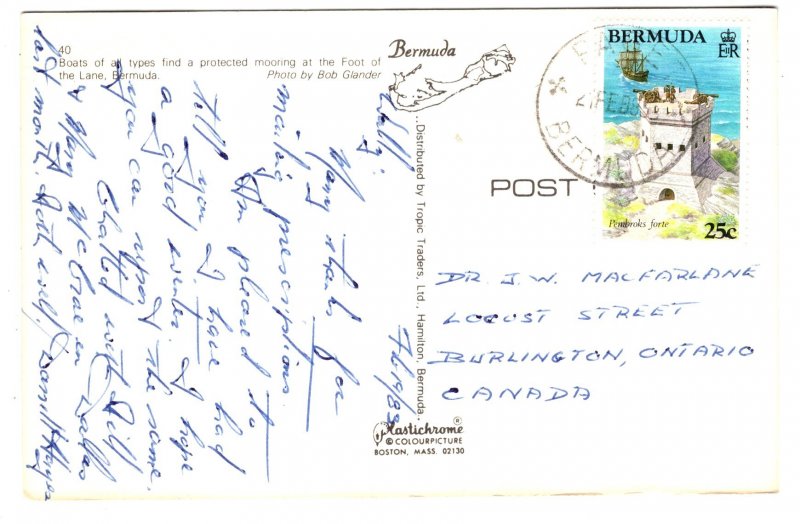 40
Boats of all types find a protected mooring at the Foot of
the Lane, Bermuda. Photo by Bob Glander
Bermuda
BERMUDA
EIIR
Pembroks forte
25c
BERMUDA
POST
Distributed by Tropic Traders, Ltd., Hamilton, Bermuda.
Plastichrome®
© COLOURPICTURE
BOSTON, MASS. 02130
DR. J. W. MACFARLANE
LOCUST STREET
BURLINGTON, ONTARIO
CANADA
Feb 19/83
Wally:
Many thanks for
mailing prescriptions.
Am pleased to
tell you I have had
a good winter. I hope
you can report the same.
Chatted with Bill
& Mary McCrae in Dallas
last month. Both well.